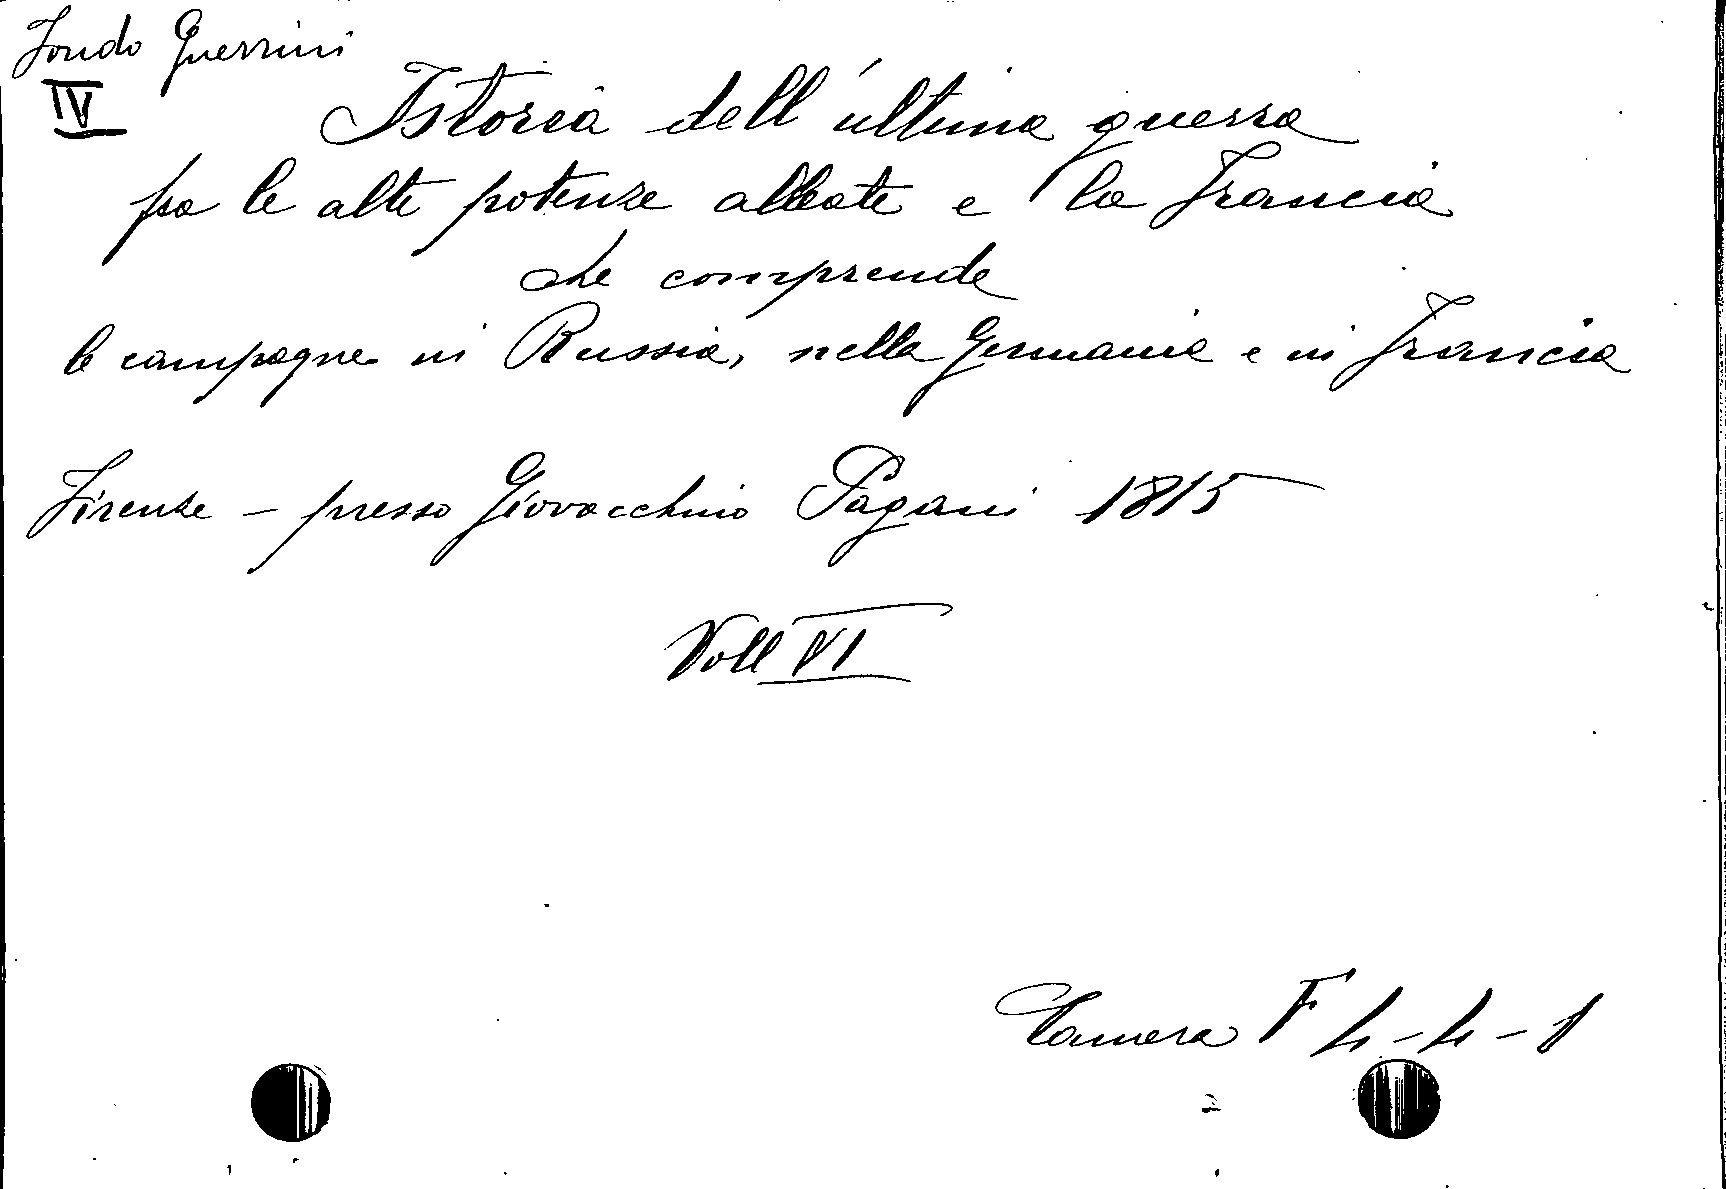 Fondo Guerrini
IV
Istoria dell'ultima guerra
fra le alte potenze alleate e la Francia
che comprende
le campagne in Russia, nella Germania e in Francia
Firenze – presso Giovacchino Pagani 1815
Voll VI
Camera F 4-4-1